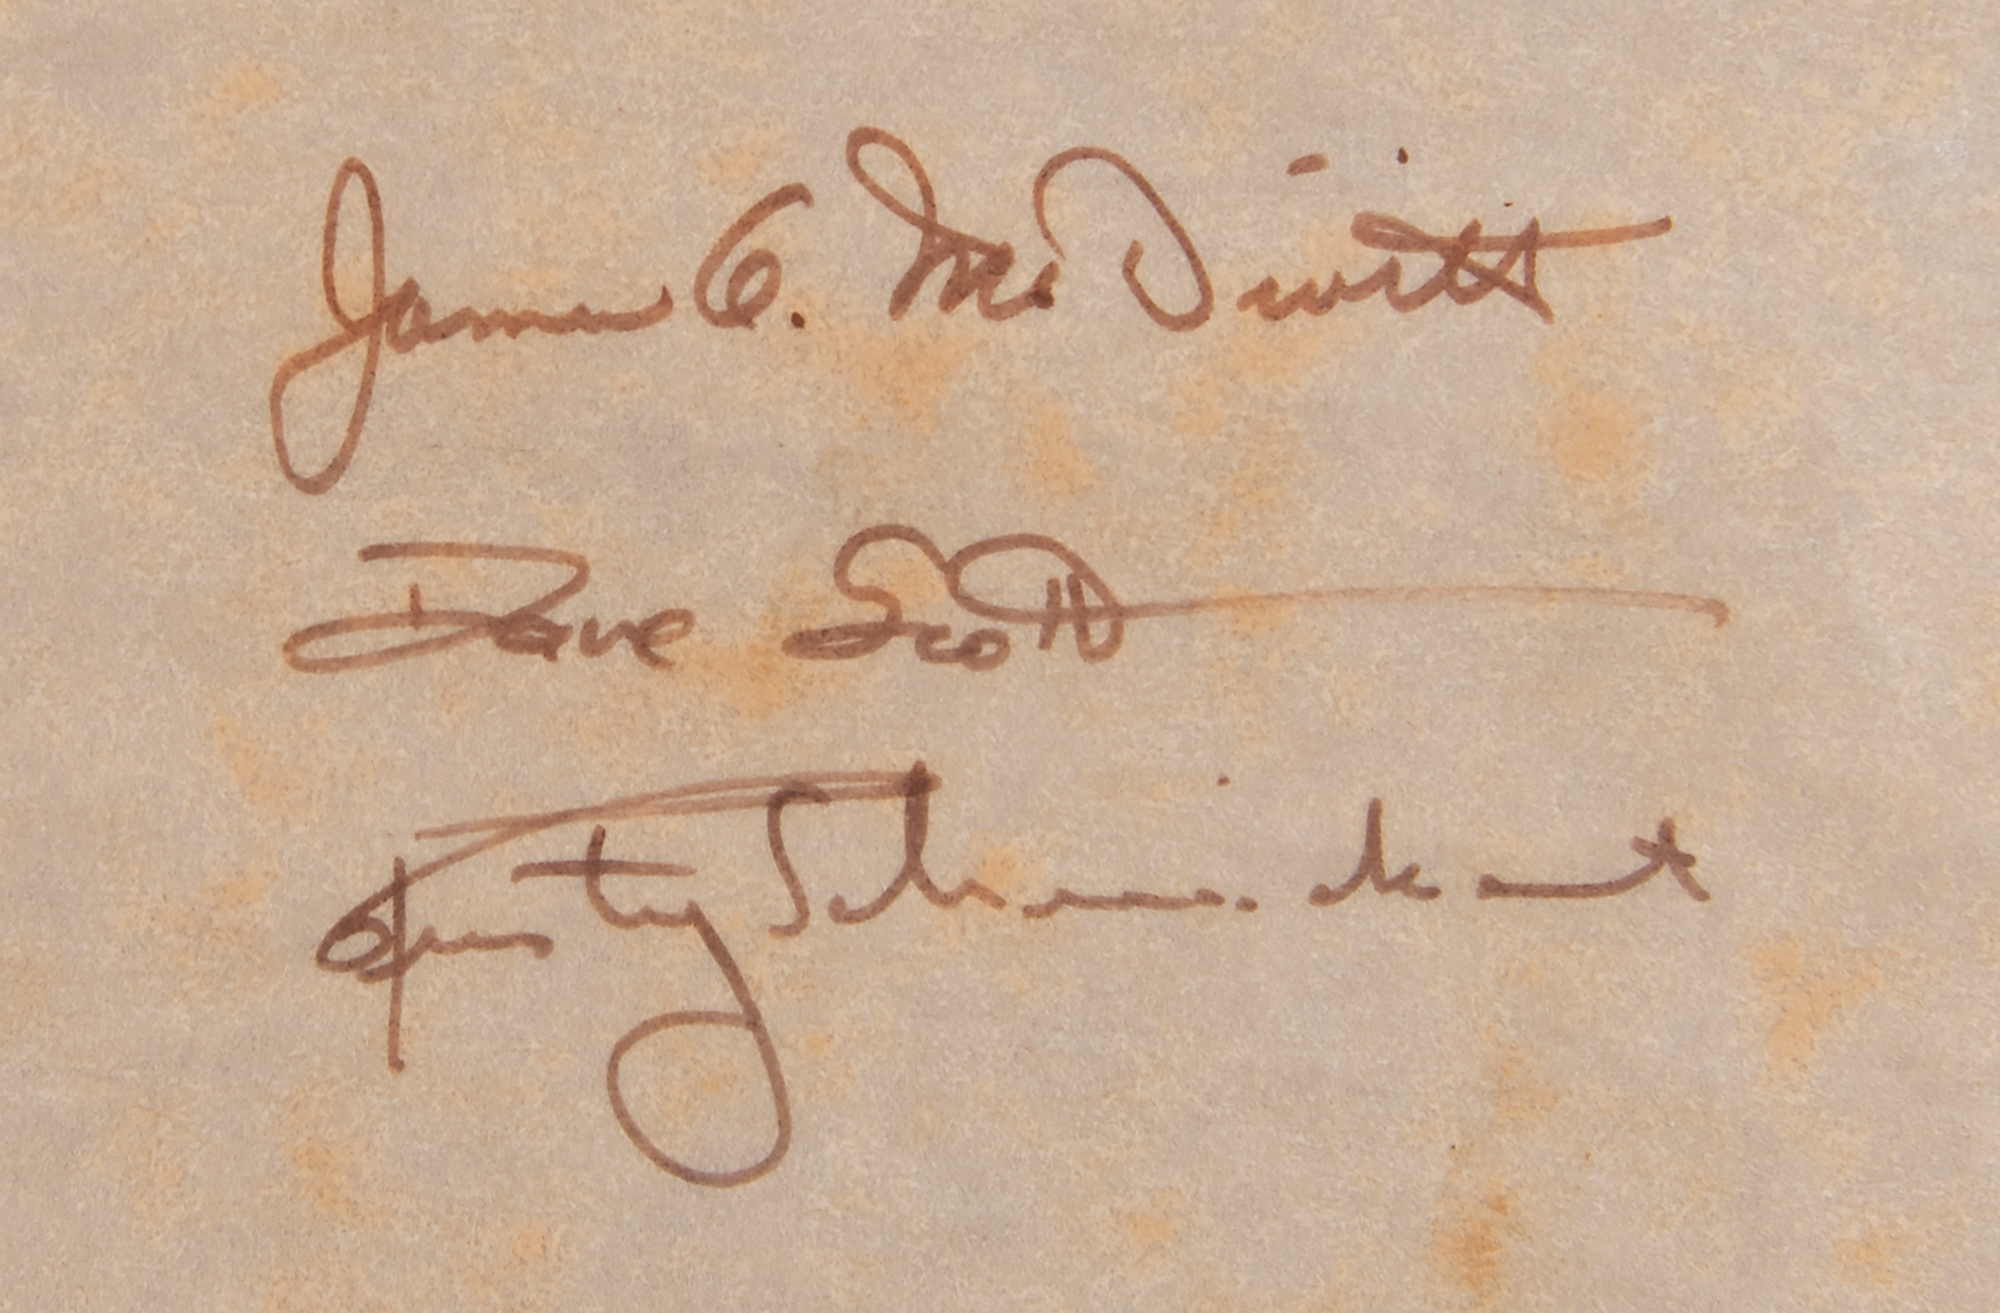 James A. McDivitt
Dave Scott
Rusty Schweickart